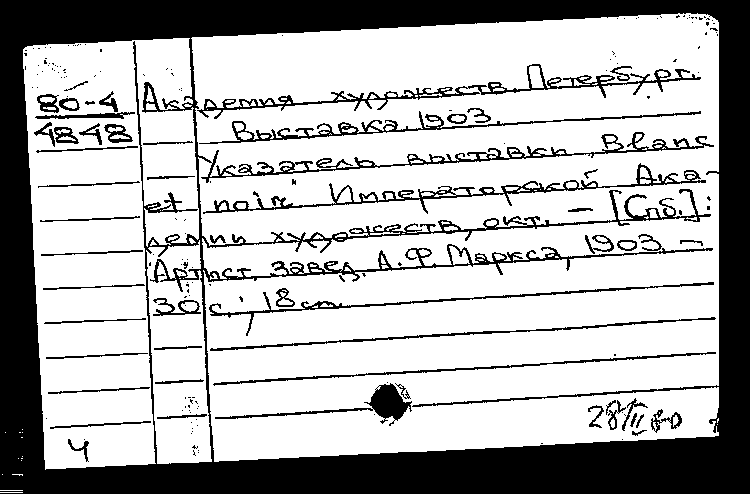 80-4
4848
Академия художеств. Петербург.
Выставка. 1903.
Указатель выставки „Blanc
et noir" Императорской Ака-
демии художеств, окт. — [Спб.]:
Артист. завед. А.Ф. Маркса, 1903. —
30 с.; 18 см.
28/II 80
4